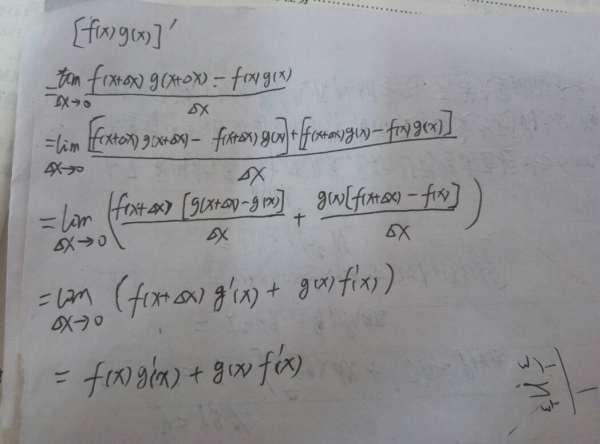 [f(x)g(x)]'
=lim Δx→0 f(x+Δx)g(x+Δx)-f(x)g(x) / Δx
=lim Δx→0 [f(x+Δx)g(x+Δx)-f(x+Δx)g(x)]+[f(x+Δx)g(x)-f(x)g(x)] / Δx
=lim Δx→0 (f(x+Δx)[g(x+Δx)-g(x)] / Δx + g(x)[f(x+Δx)-f(x)] / Δx)
=lim Δx→0 (f(x+Δx)g'(x)+g(x)f'(x))
=f(x)g'(x)+g(x)f'(x)